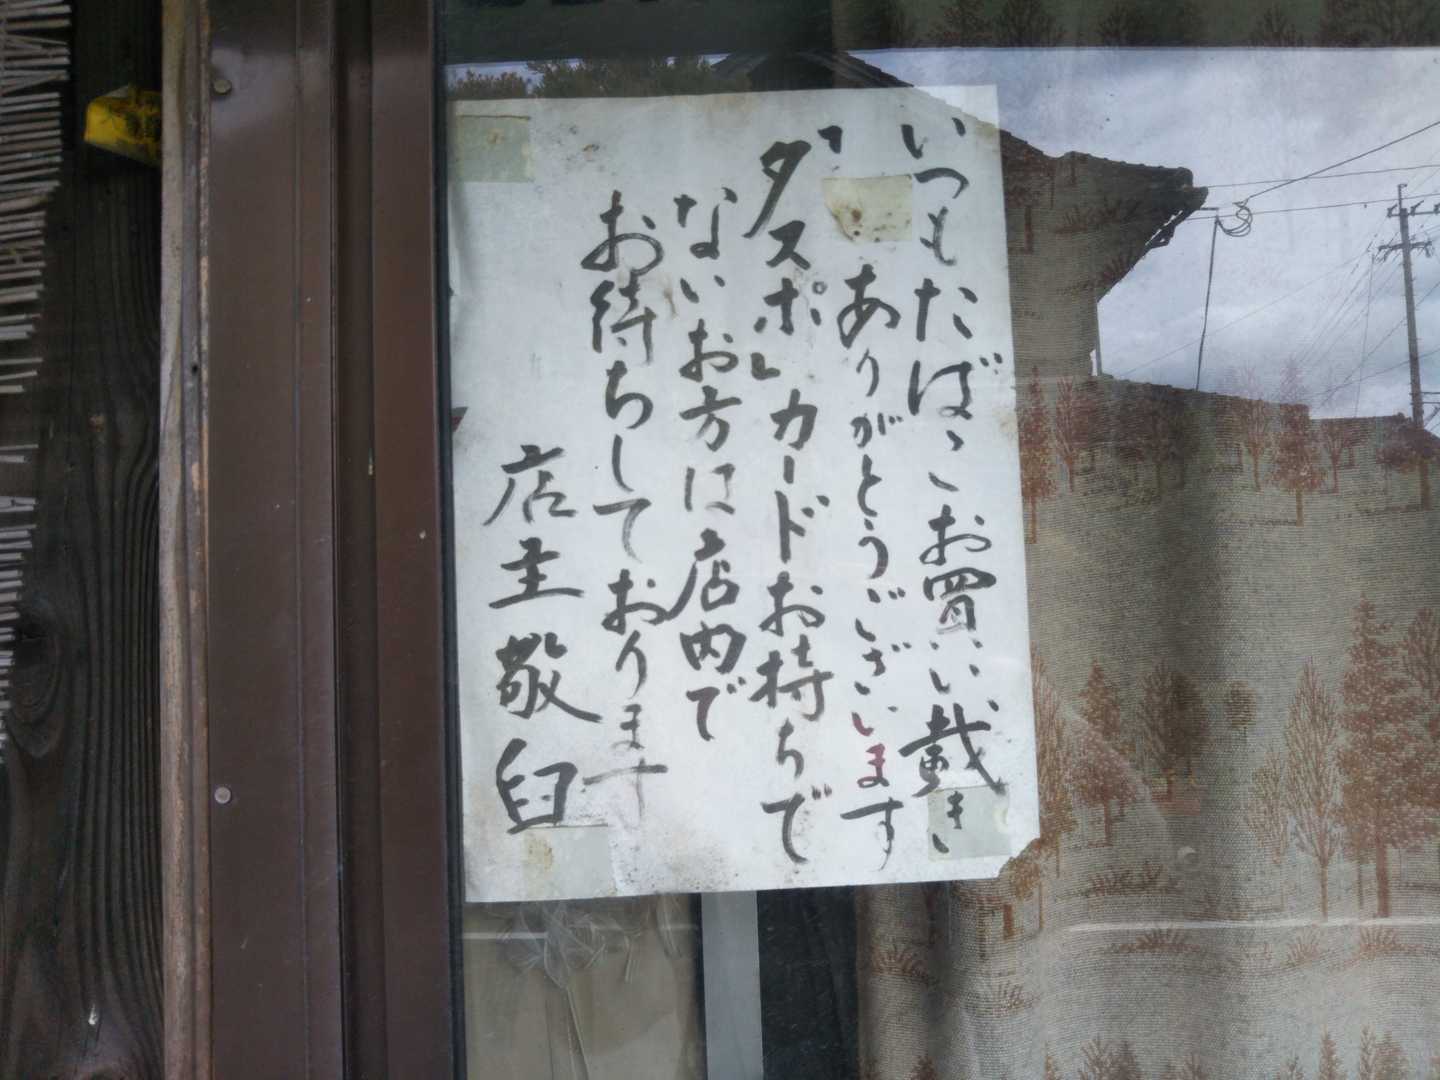 いつもたばこお買い戴き
ありがとうございます
「タスポ」カードお持ちで
ないお方は店内で
お待ちしております
店主敬白